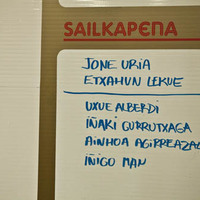 SAILKAPENA
JONE URIA
ETXAHUN LEKUE
UXUE ALBERDI
IÑAKI GURRUTXAGA
AINHOA AGIRREAZAL
IÑIGO MAN